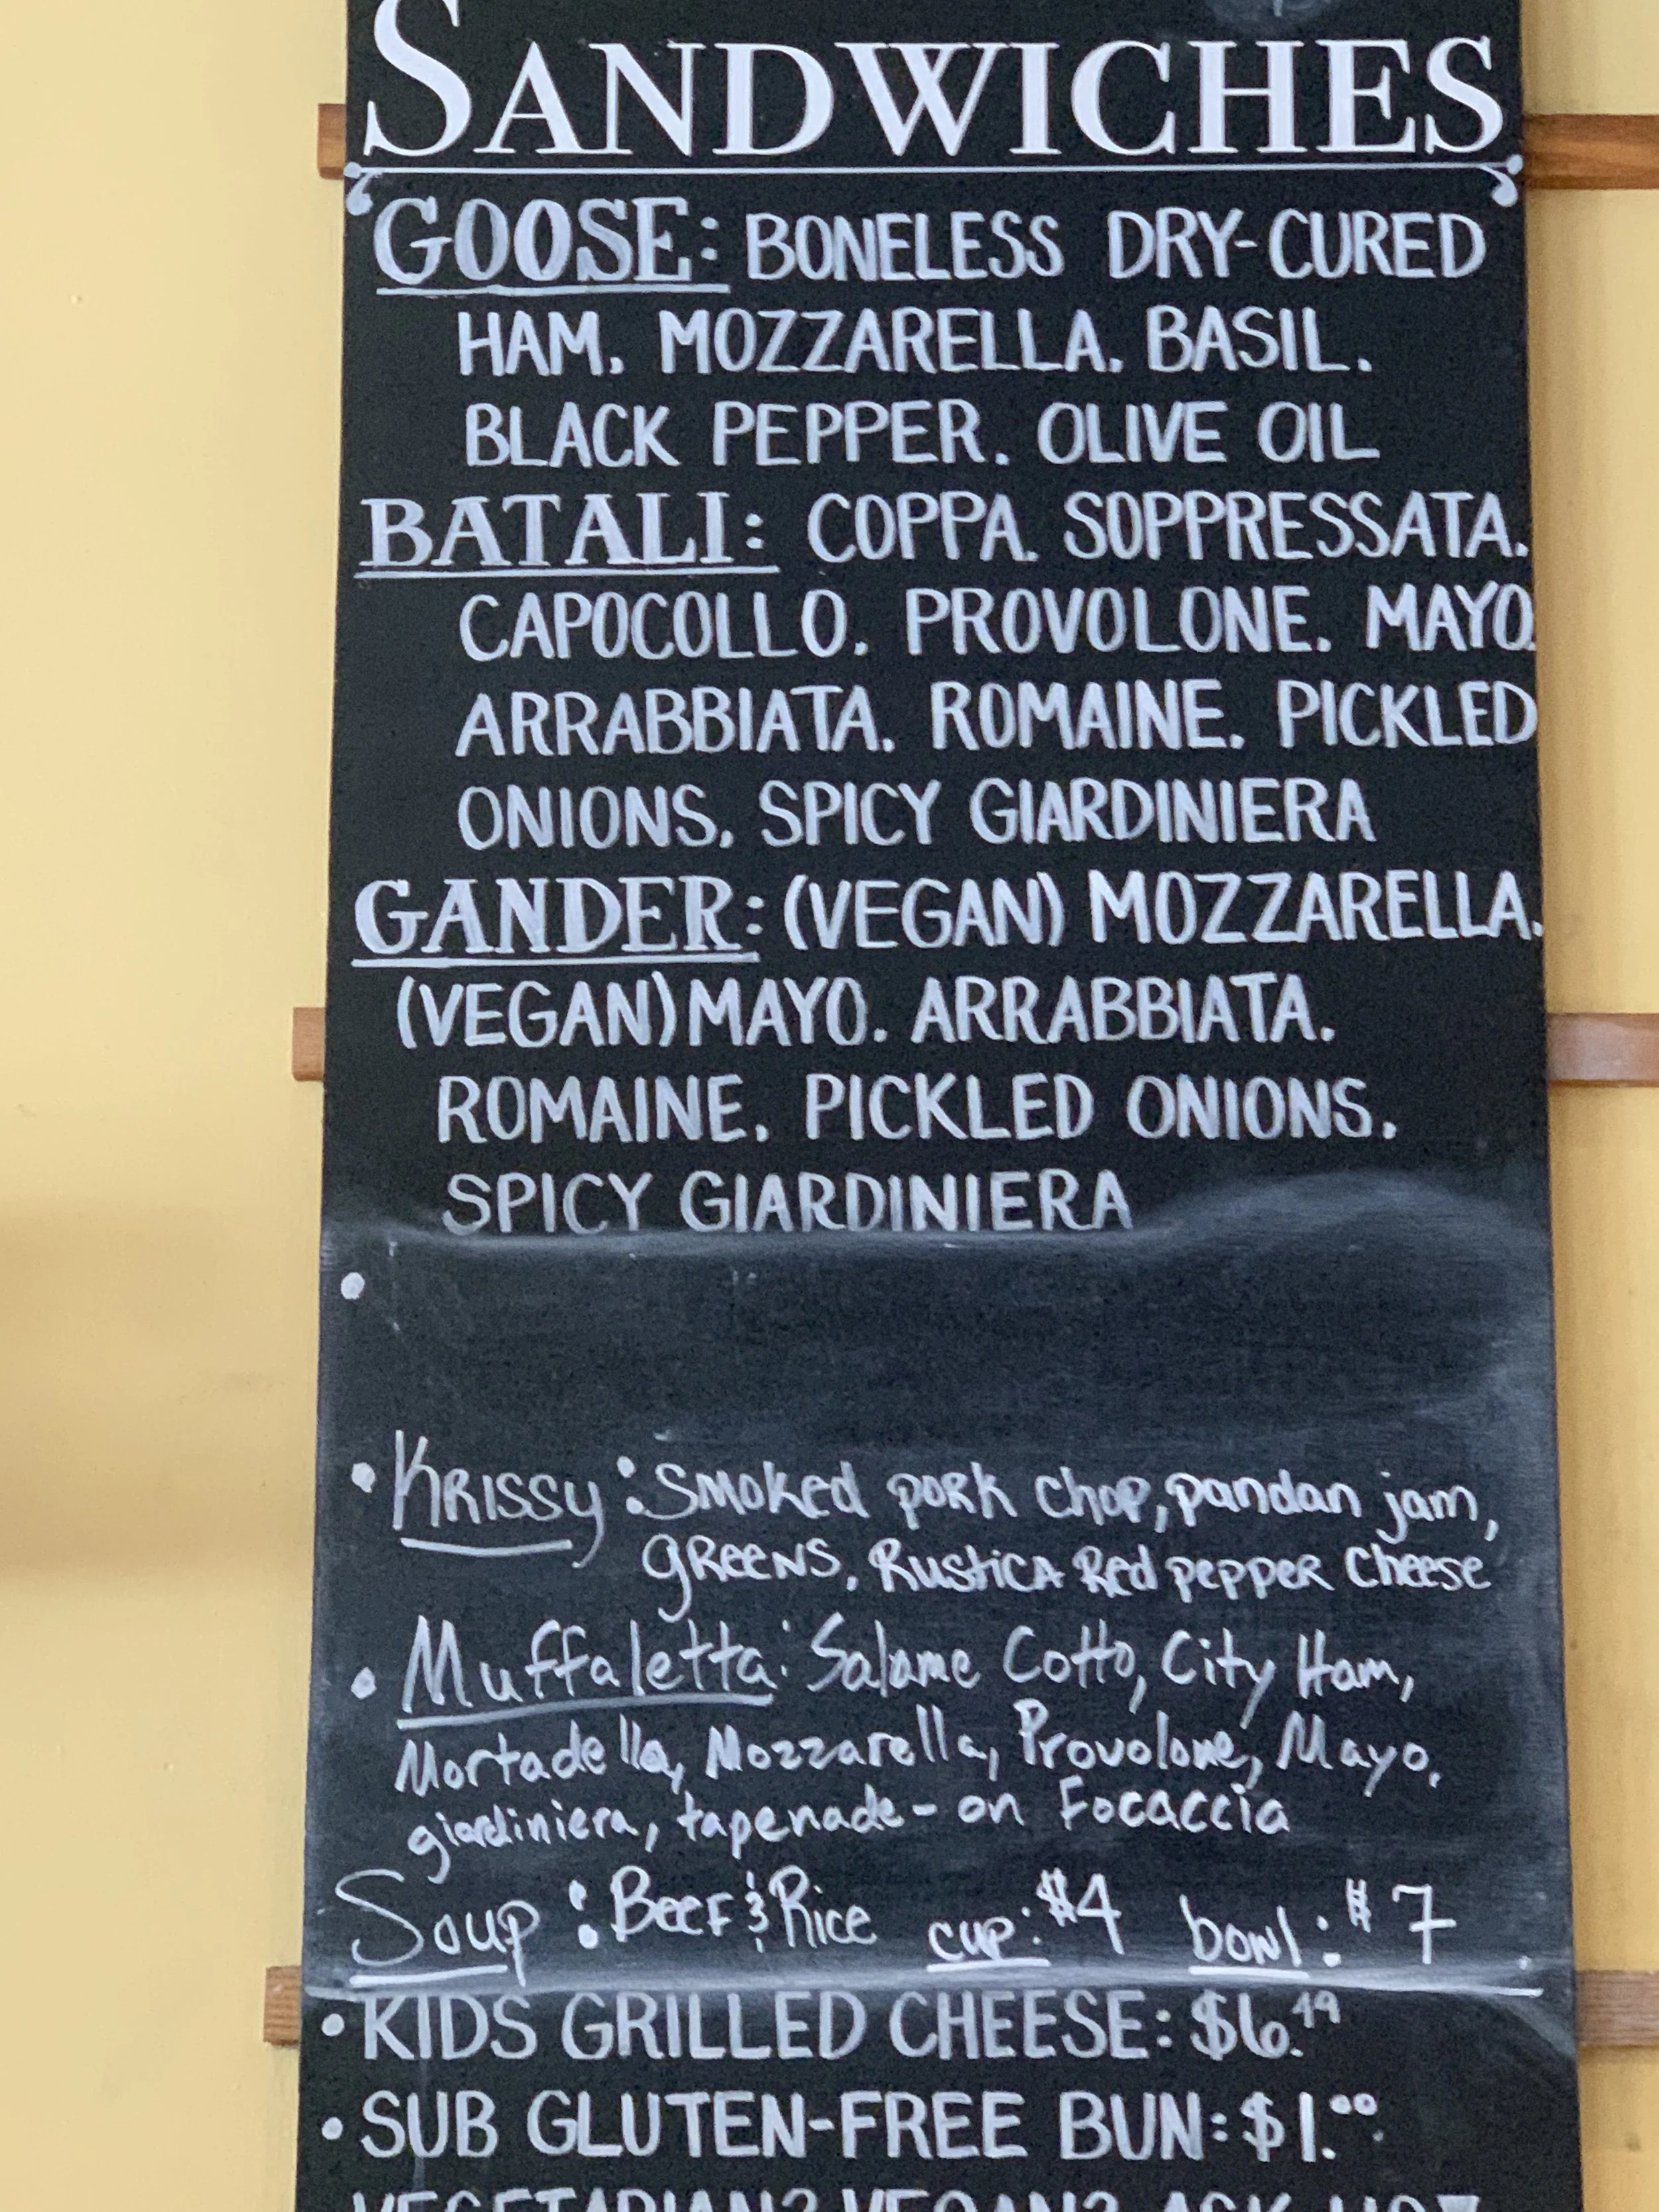 SANDWICHES
GOOSE: BONELESS DRY-CURED
HAM, MOZZARELLA, BASIL,
BLACK PEPPER, OLIVE OIL
BATALI: COPPA, SOPPRESSATA,
CAPOCOLLO, PROVOLONE, MAYO,
ARRABBIATA, ROMAINE, PICKLED
ONIONS, SPICY GIARDINIERA
GANDER: (VEGAN) MOZZARELLA,
(VEGAN) MAYO, ARRABBIATA,
ROMAINE, PICKLED ONIONS,
SPICY GIARDINIERA
•
• KRISSY: Smoked pork chop, pandan jam,
greens, Rustica Red pepper Cheese
• Muffaletta: Salame Cotto, City Ham,
Mortadella, Mozzarella, Provolone, Mayo,
giardiniera, tapenade - on Focaccia
Soup: Beef & Rice cup: $4 bowl: $7
• KIDS GRILLED CHEESE: $6.49
• SUB GLUTEN-FREE BUN: $1.00
VEGETARIAN? VEGAN? ASK US